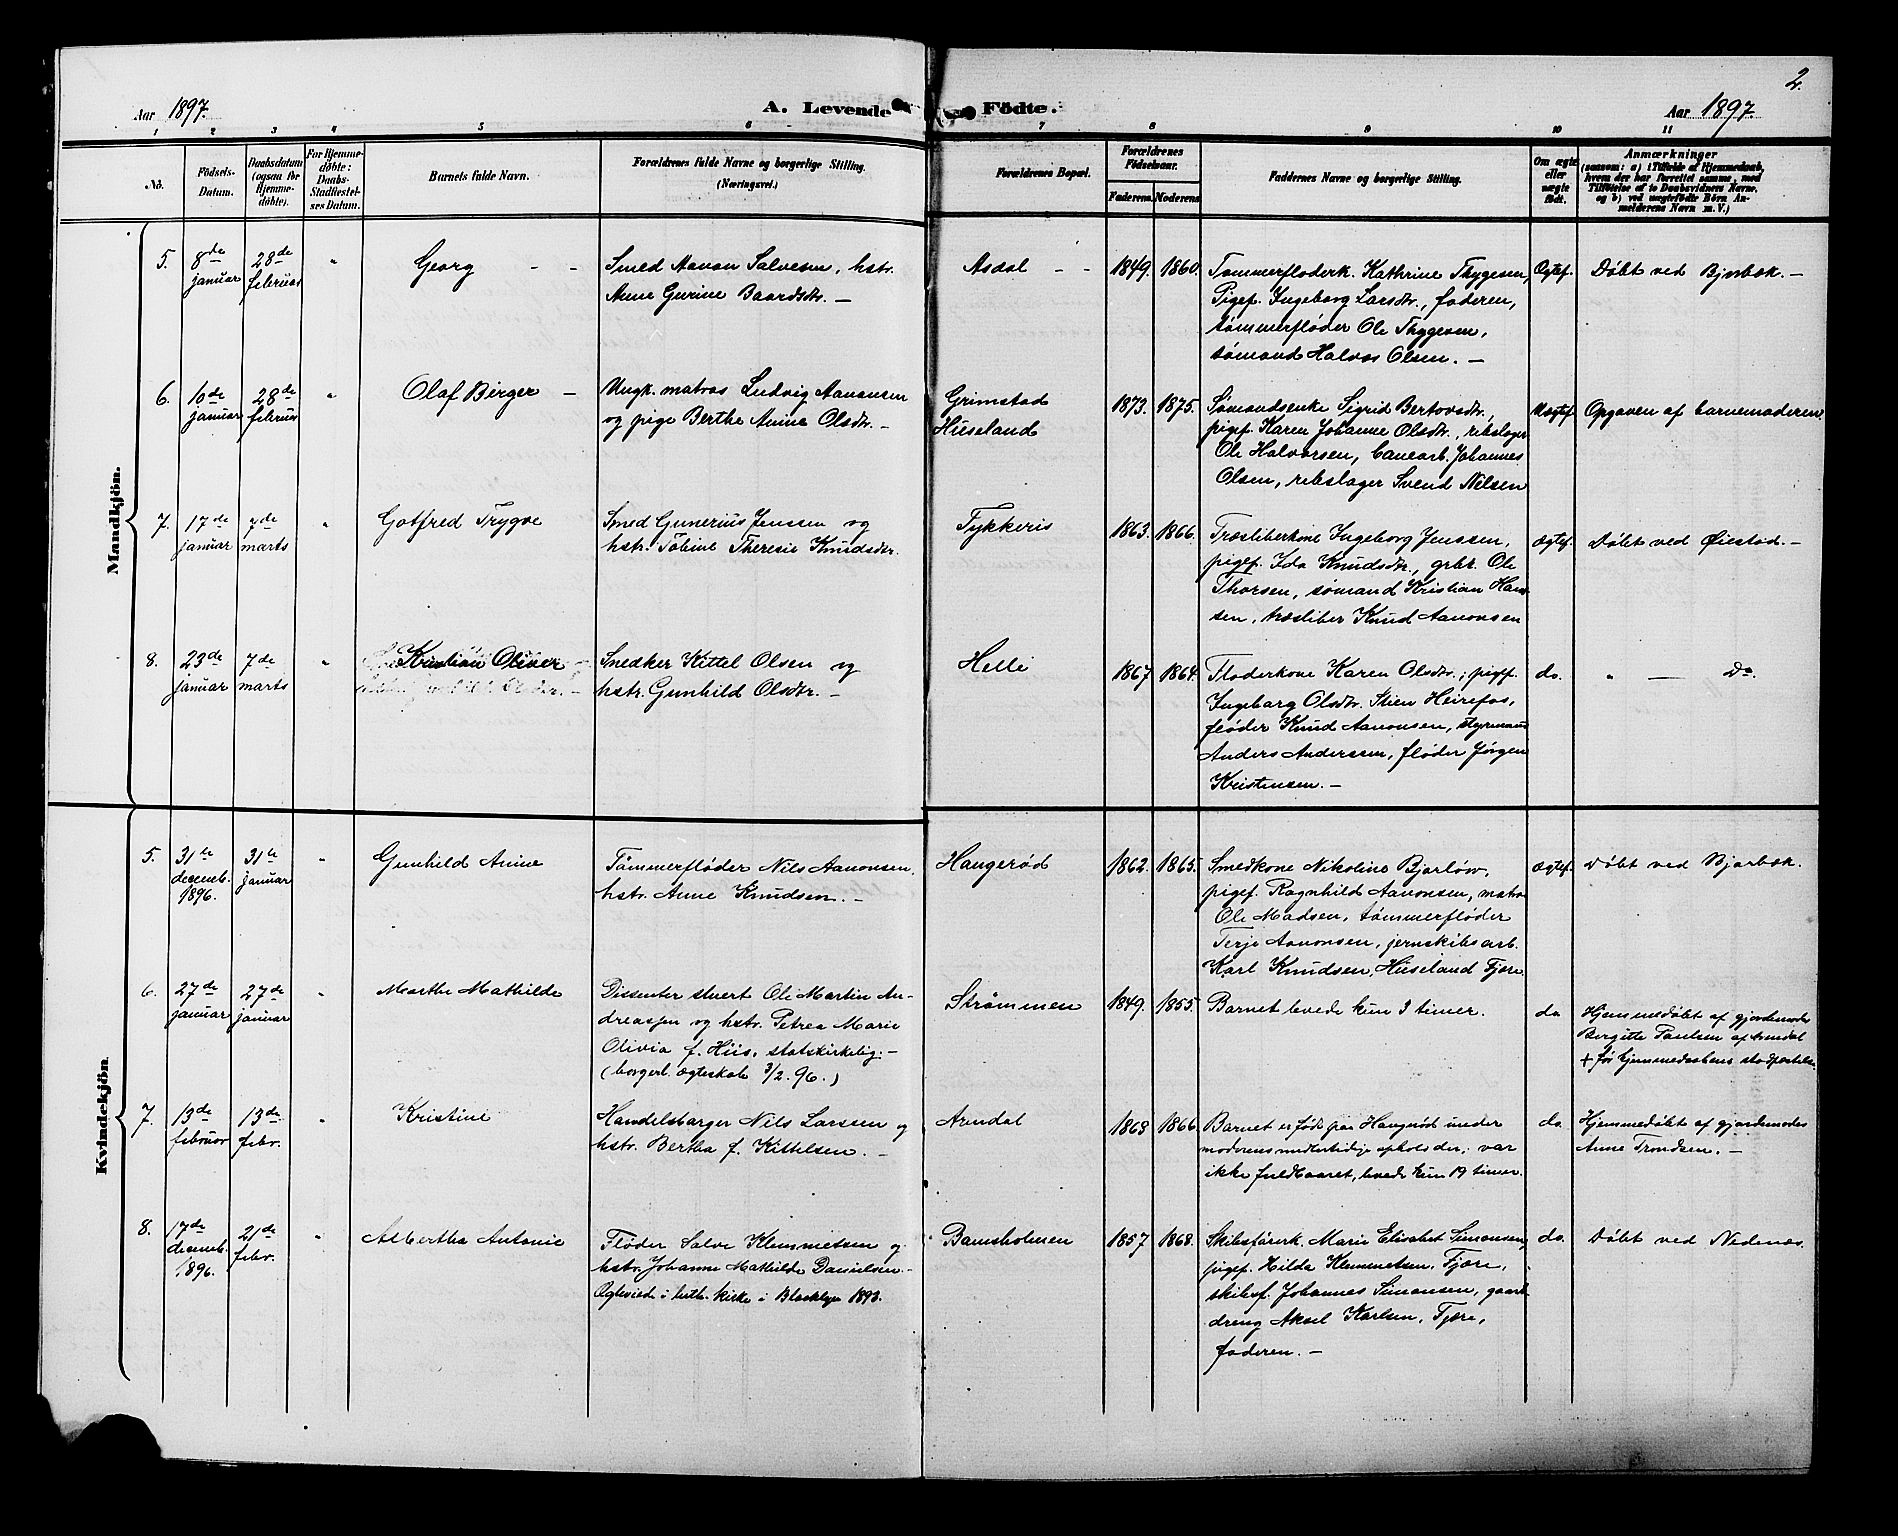 2.
Aar 1897.
A. Levende
Födte.
Aar 1897.
1 2 3 4 5 6 7 8 9 10 11
No.
Födsels-
Datum.
Daabsdatum
(ogsaa for
Hjemme-
döbte).
For Hjemme-
döbte:
Daabs-
Stadfæstel-
ses Datum.
Barnets fulde Navn.
Forældrenes fulde Navne og borgerlige Stilling.
(Næringsvei.)
Forældrenes Bopæl.
Forældrenes
Födselsaar.
Faderens. Moderens.
Faddernes Navne og borgerlige Stilling.
Om ægte
eller
uægte
födt.
Anmærkninger
(saasom: a) i Tilfælde af Hjemmedaab,
hvem der har forrettet samme, med
Tilföielse af to Daabsvidners Navne,
og b) ved uægtefödte Börn An-
melderens Navn m. V.)
Mandkjön.
5.
8de
januar
28de
februar
"
Georg - -
Smed Aanon Salvesen, hstr.
Anne Gurine Baardsdtr. -
Asdal - -
1849. 1860.
Tømmerfløderk. Kathrine Thygesen,
Pigef. Ingeborg Larsdtr., faderen,
tømmerfløder Ole Thygesen,
sømand Halvor Olsen. -
Ægtef.
Døbt ved Bjorbæk. -
6.
10de
januar
28de
februar
"
Olaf Birger -
Ungk. matros Ludvig Aanonsen
og pige Berthe Anine Olsdtr. -
Grimstad
Hiseland
1873. 1875.
Sømandsenke Sigrid
pigef. Karen Johanne Olsdtr., rebslager
Ole Halvorsen, banearb. Johannes
Olsen, rebslager Svend Nilsen
Uægtef.
Opgaven af barnemoderen
7.
17de
januar
7de
marts
"
Gotfred Trygve
Smed Gunerius Jenssen og
hstr. Tobine Theresie Knudsdtr.
Tykkeris
1863. 1866.
Træsliberkone Ingeborg Jenssen,
pigef. Ida Knudsdtr., grbr. Ole
Thorsen, sømand Kristian Han-
sen, træsliber Knud Aanonsen
Ægtef.
Døbt ved Øiestad. -
8.
23de
januar
7de
marts
"
Kristian Oliver
Snedker Kittel Olsen og
hstr. Gunhild Olsdtr. -
Helle
1867 1864.
Fløderkone Karen Olsdtr.; pigef.
Ingeborg Olsdtr. Stien Heirefos,
fløder Knud Aanonsen, styrmand
Anders Anderssen, fløder Jørgen
Kristensen. -
do.
" — Do.
Kvindekjön.
5.
31te
decemb.
1896.
31te
januar
"
Gunhild Anine
Tømmerfløder Nils Aanonsen,
hstr. Anne Knudsen. -
Haugerød
1862. 1865.
Smedkone Nikoline Bjorløw,
pigef. Ragnhild Aanonsen, matros
Ole Madsen, tømmerfløder
Terje Aanonsen, jernskibsarb.
Karl Knudsen, Hiseland Fjære
Ægtef.
Døbt ved Bjorbæk.
6.
27de
januar
27de
januar
"
Marthe Mathilde
Dissenter stuert Ole Martin An-
dreassen og hstr. Petrea Marie
Olivia f. Hiis, statskirkelig. -
(borgerl. ægteskab 3/2. 96.)
Strømmen
1849. 1855.
Barnet levede kun 3 timer.
do
Hjemmedøbt af gjordemoder
Bergitte Paulsen af Arendal
+ før hjemmedaabens stadfæstelse
7.
13de
februar
13de
febr.
"
Kristine
Handelsborger Nils Larsen og
hstr. Bertha f. Kittelsen. -
Arendal
1868 1866.
Barnet er født paa Haugerød under
moderens midlertidige ophold der; var
ikke fuldbaaret, levede kun 19 timer.
do.
Hjemmedøbt af gjordemoder
Anne Trondsen. -
8.
17de
decemb.
1896.
21de
febr.
"
Albertha Antonie
Fløder Salve Klemmetsen og
hstr. Johanne Mathilde Danielsen.
Ægteviede i luth. kirke i 1893.
Bamsholmen
1857 1868.
Skibsførerk. Marie Elisabet Simonsen,
pigef. Hilda Klemmetsen, Fjære,
skibsf. Johannes Simonsen, gaard-
dreng Aksel Karlsen, Fjære,
faderen. -
do.
Døbt ved Nedenæs.